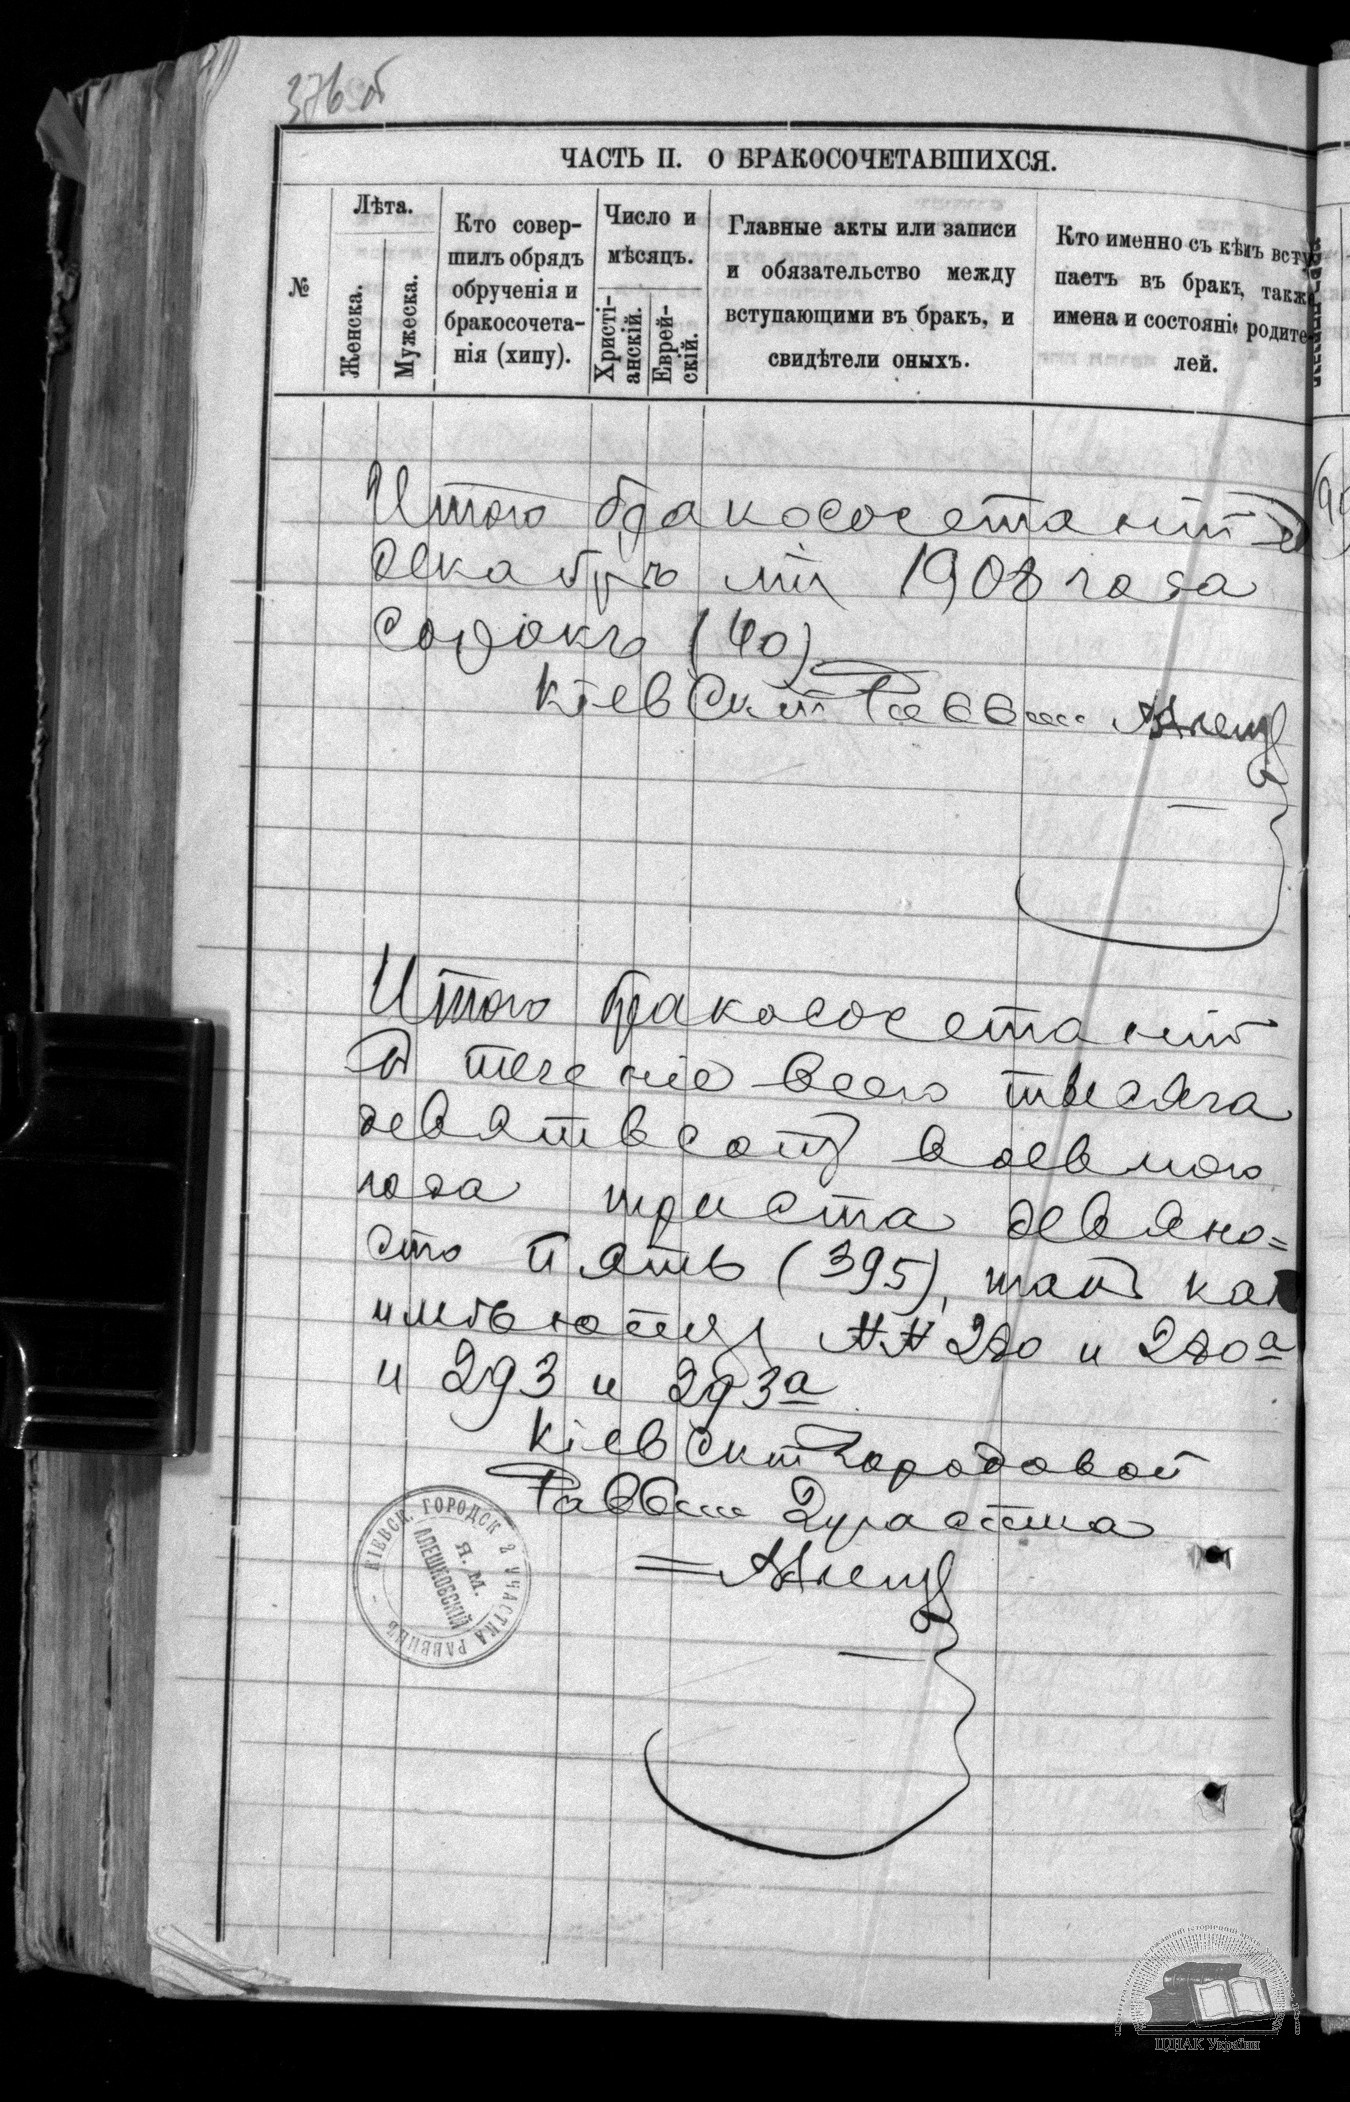 376 об
ЧАСТЬ II. О БРАКОСОЧЕТАВШИХСЯ.
№
Лѣта.
Женска.
Мужеска.
Кто совер-
шилъ обрядъ
обрученія и
бракосочета-
нія (хипу).
Число и
мѣсяцъ.
Христі-
анскій.
Еврей-
скій.
Главные акты или записи
и обязательство между
вступающими въ бракъ, и
свидѣтели оныхъ.
Кто именно съ кѣмъ всту-
паетъ въ бракъ, также
имена и состояніе родите-
лей.
Итого бракосочетаній въ
декабрѣ мцѣ 1908 года
сорокъ (40)
Кіевскій Раввинъ
Итого бракосочетаній
въ теченіе всего тысяча
девятьсотъ восьмого
года триста девяно=
сто пять (395), такъ какъ
имѣются №№ 280 и 280а
и 293 и 293а
Кіевскій Городовой
Раввинъ 2 участка
КІЕВСК. ГОРОДСК 2 УЧАСТКА РАВВИНЪ
Я. М.
АЛЕШКОВСКІЙ
ЦДІАК України